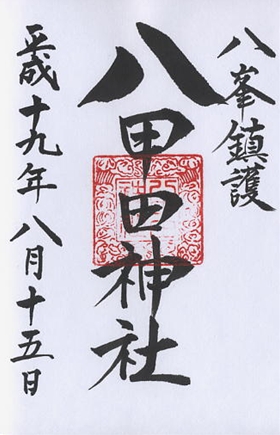 八峯鎮護
八甲田神社
平成十九年八月十五日